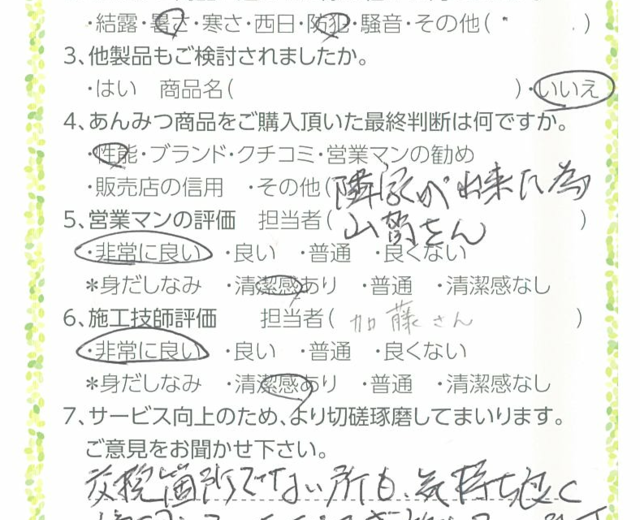 ・結露・暑さ・寒さ・西日・防犯・騒音・その他( )
3、他製品もご検討されましたか。
・はい 商品名( )・いいえ
4、あんみつ商品をご購入頂いた最終判断は何ですか。
・性能・ブランド・クチコミ・営業マンの勧め
・販売店の信用 ・その他(隣家が出来た為)
5、営業マンの評価 担当者( さん)
・非常に良い ・良い ・普通 ・良くない
*身だしなみ ・清潔感あり ・普通 ・清潔感なし
6、施工技師評価 担当者(加藤さん)
・非常に良い ・良い ・普通 ・良くない
*身だしなみ ・清潔感あり ・普通 ・清潔感なし
7、サービス向上のため、より切磋琢磨してまいります。
ご意見をお聞かせ下さい。
交換箇所でない所も、気持ち良く